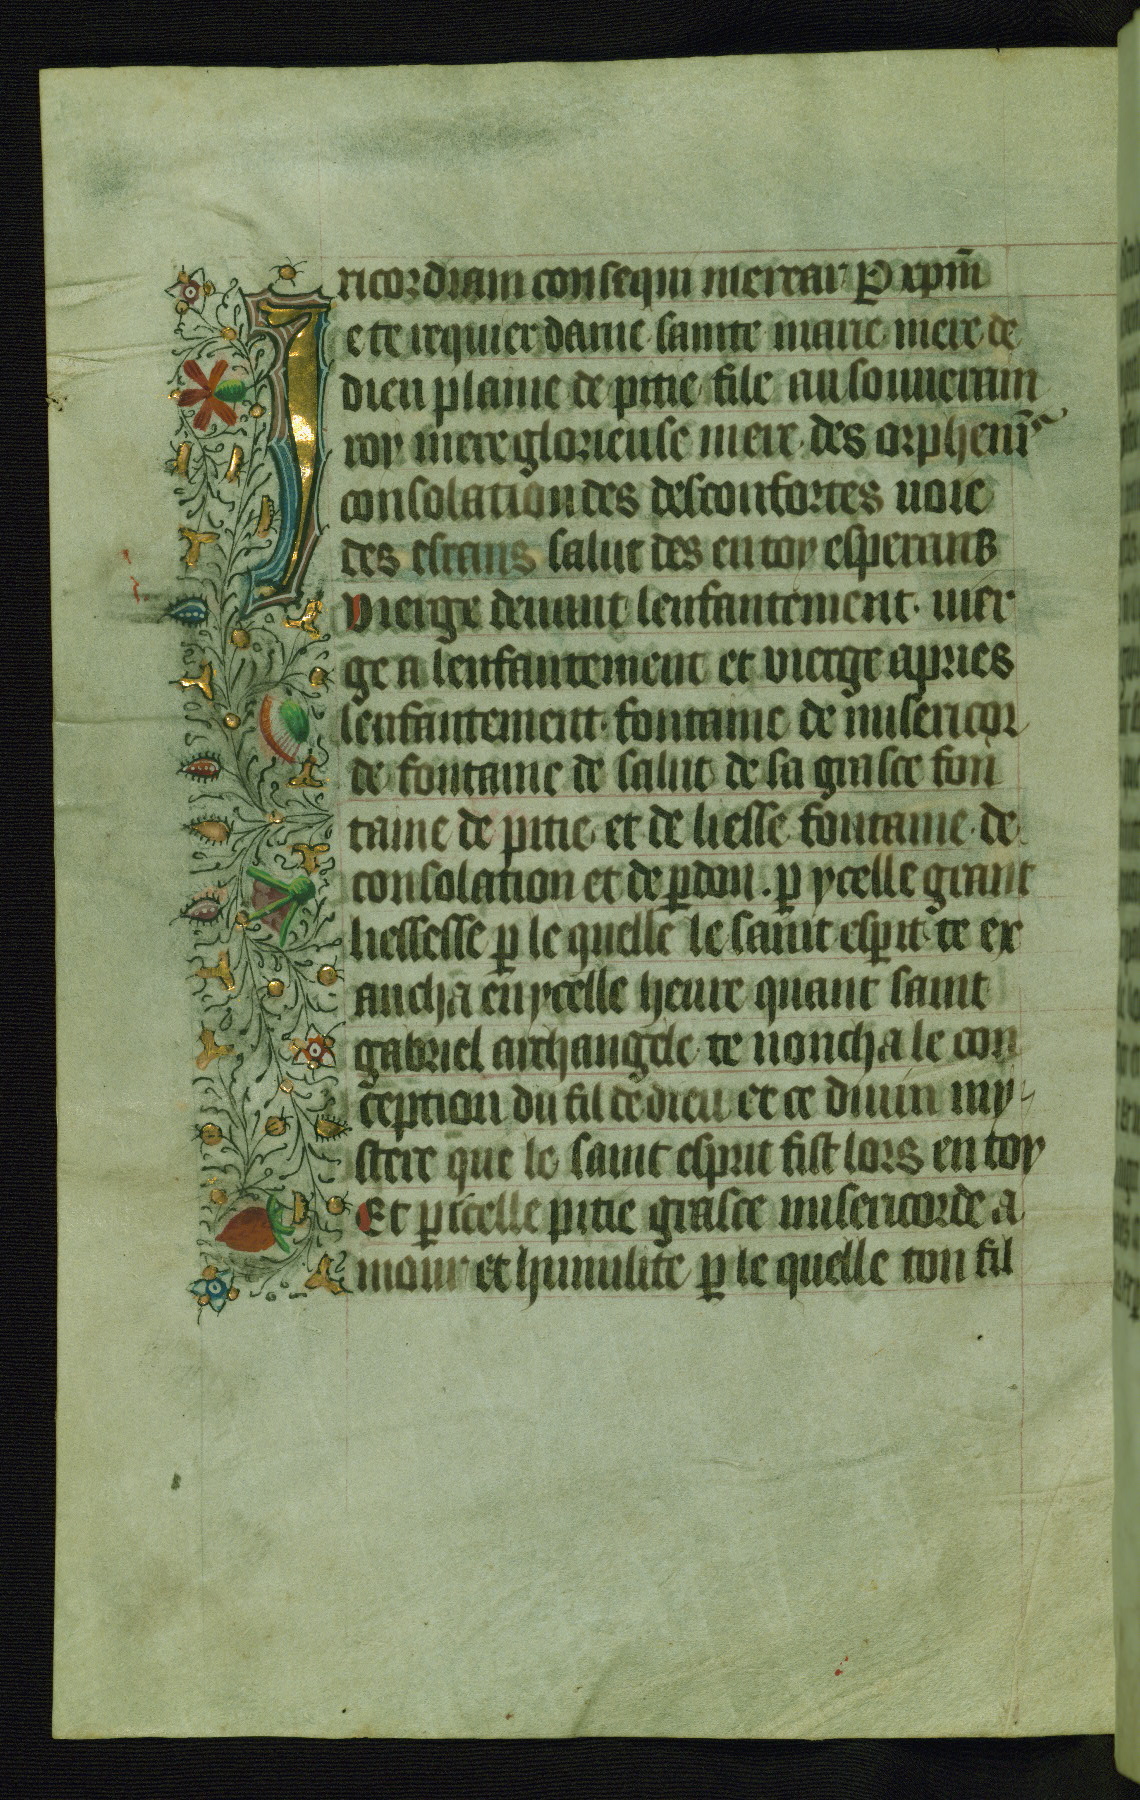 ricordiam consequi merear P xpm̄
Je te requier dame sainte marie mere de
dieu plaine de pitie file au souuerain
roy mere glorieuse mere des orphenīs
consolation des desconfortes uoie
des errans salut des en toy esperans
vierge deuant lenfantement. uier
ge a lenfantement et vierge apries
lenfantement. fontaine de misericor
de fontaine de salut de la grasce fon
taine de pitie et de liesse fontaine de
consolation et de ꝑdon. ꝑ ycelle grant
liessesse ꝑ le quelle le saint esperit te ex
aucha en ycelle heure quant saint
gabriel archangele te noncha le con
ception du fil de dieu et ce diuin my-
stere que le saint esprit fist lors en toy
Et ꝑ icelle pitie grasce misericorde a
mour et humilite ꝑ le quelle ton fil